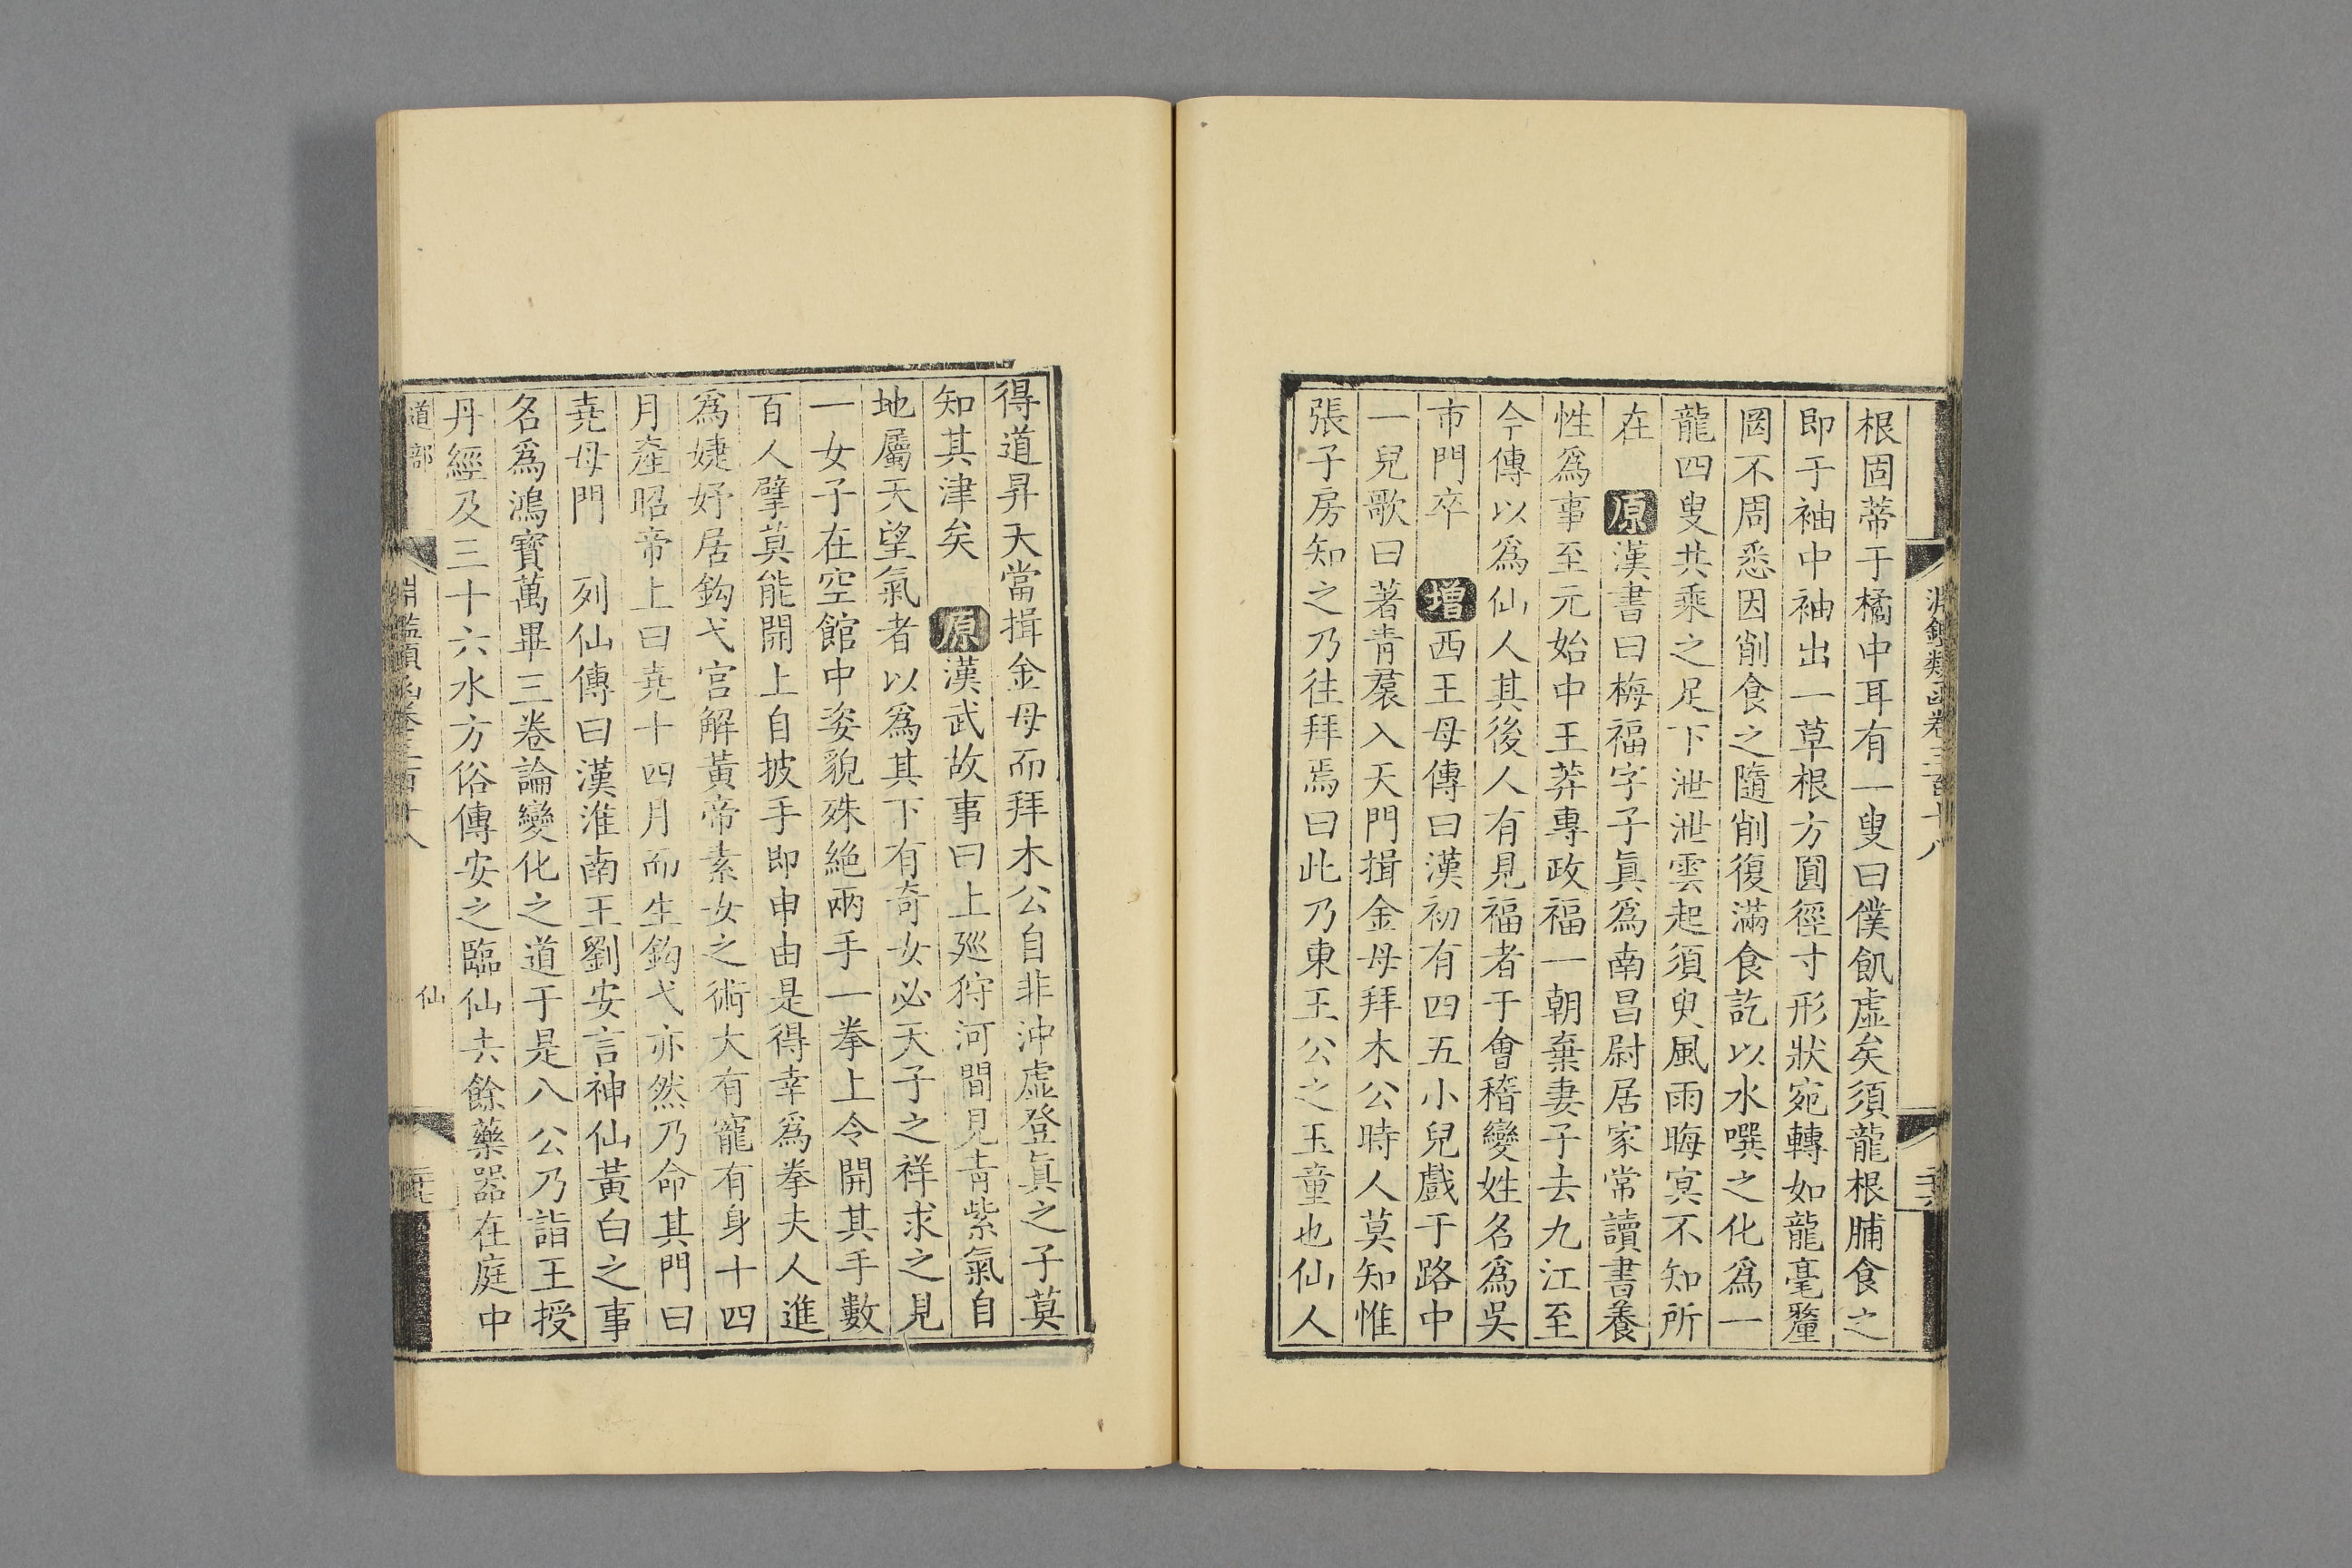 淵鑑類函卷三百十八
根固蒂于橘中耳有一叟曰僕飢虛矣須龍根脯食之
即于袖中袖出一草根方圓徑寸形狀宛轉如龍毫釐
罔不周悉因削食之隨削復滿食訖以水噀之化爲一
龍四叟共乘之足下泄泄雲起須臾風雨晦冥不知所
在 原漢書曰梅福字子眞爲南昌尉居家常讀書養
性爲事至元始中王莽專政福一朝棄妻子去九江至
今傳以爲仙人其後人有見福者于會稽變姓名爲吳
市門卒 增西王母傳曰漢初有四五小兒戲于路中
一兒歌曰著青裙入天門揖金母拜木公時人莫知惟
張子房知之乃往拜焉曰此乃東王公之玉童也仙人
得道昇天當揖金母而拜木公自非沖虛登眞之子莫
知其津矣 原漢武故事曰上廵狩河間見青紫氣自
地屬天望氣者以爲其下有奇女必天子之祥求之見
一女子在空館中姿貌殊絶兩手一拳上令開其手數
百人擘莫能開上自披手即申由是得幸爲拳夫人進
爲婕妤居鈎弋宮解黃帝素女之術大有寵有身十四
月產昭帝上曰堯十四月而生鈎弋亦然乃命其門曰
堯母門 列仙傳曰漢淮南王劉安言神仙黃白之事
名爲鴻寶萬畢三卷論變化之道于是八公乃詣王授
丹經及三十六水方俗傳安之臨仙去餘藥器在庭中
道部 淵鑑類函卷三百十八 仙